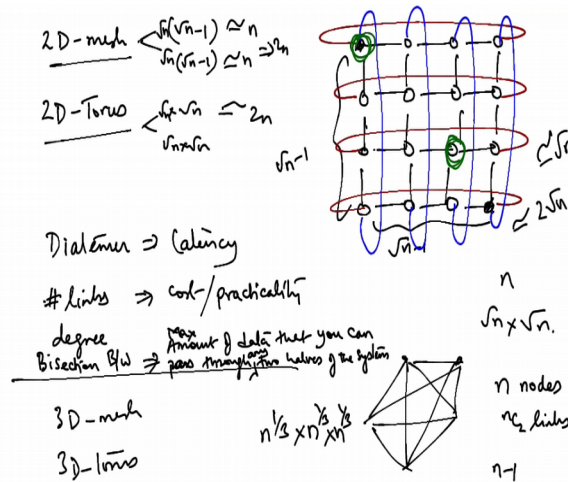 2D-mesh
√n(√n-1) ≃ n
√n(√n-1) ≃ n ⇒ 2n
2D-Torus
√n×√n ≃ 2n
√n×√n
√n-1
≃√n
≃ 2√n
√n-1
Diatemer ⇒ Latency
#links ⇒ cost/practicality
degree
Bisection B/W ⇒ Max Amount of data that you can
pass through any two halves of the system
3D-mesh
3D-Torus
n^1/3 × n^1/3 × n^1/3
n
√n × √n.
n nodes
nC2 links
n-1